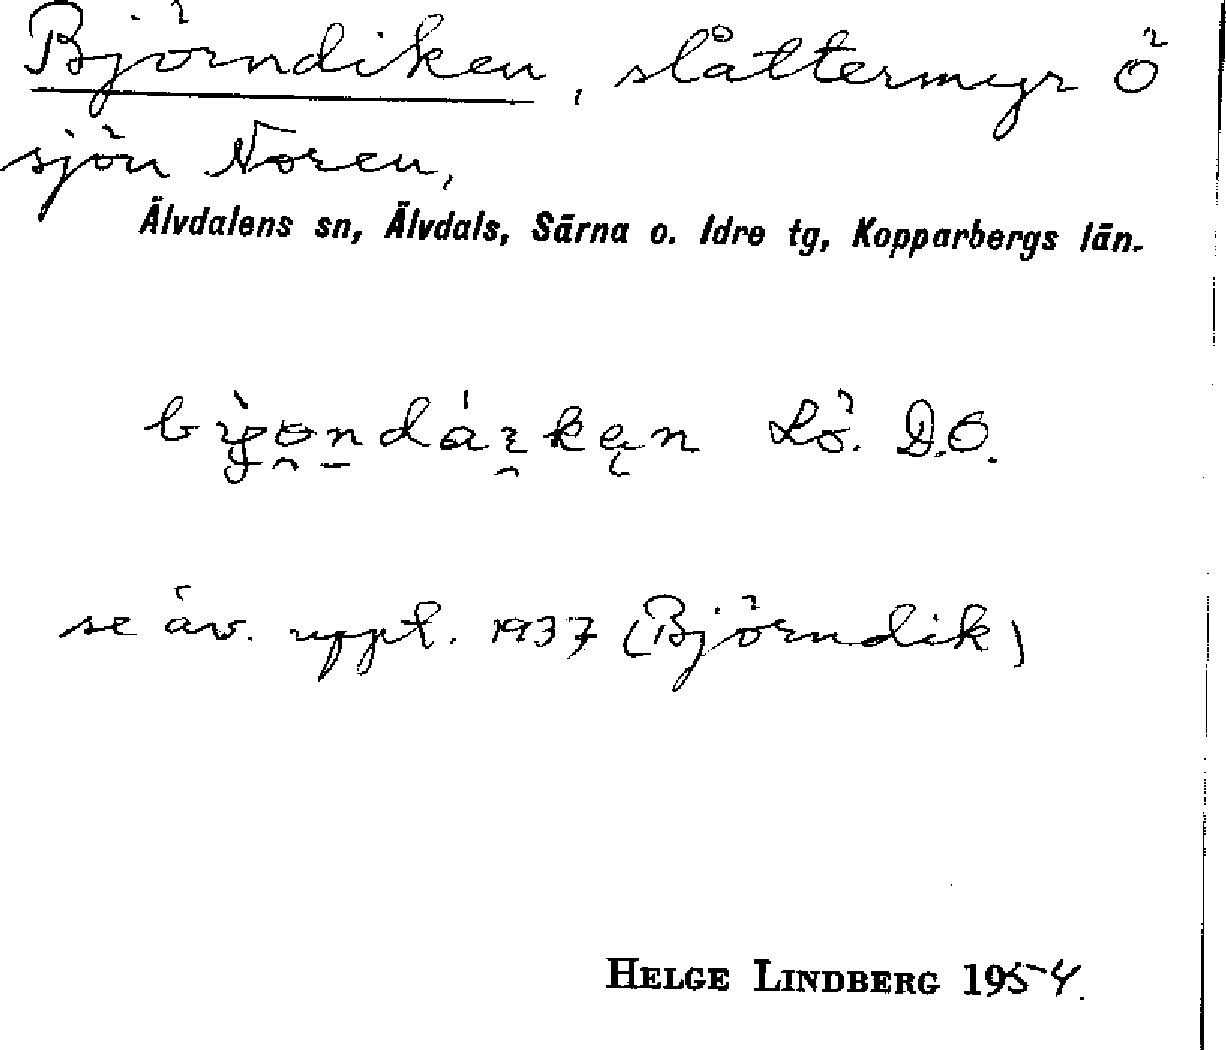 Björndiken, slåttermyr Ö
sjön Noren,
Älvdalens sn, Älvdals, Särna o. Idre tg, Kopparbergs län.
Lö. D.O.
se äv. uppt. 1937 (Björndik)
HELGE LINDBERG 1954.